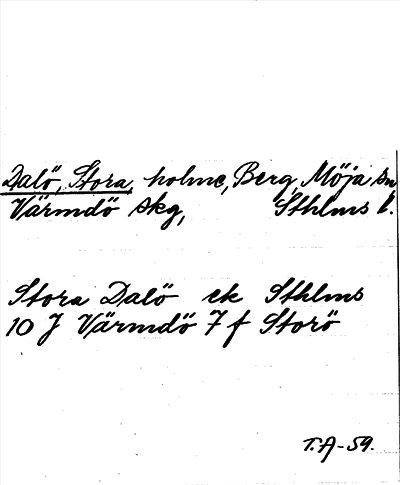 Dalö, Stora, holme, Berg, Möja sn
Värmdö skg, Sthlms l.
Stora Dalö ek Sthlms
10 J Värmdö 7 f Storö
T.A-59.